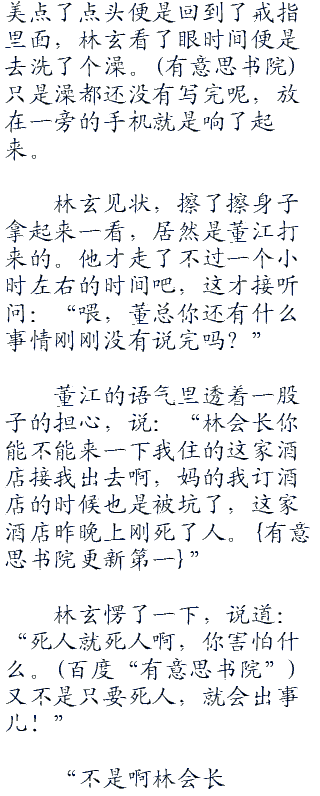 美点了点头便是回到了戒指
里面，林玄看了眼时间便是
去洗了个澡。(有意思书院)
只是澡都还没有写完呢，放
在一旁的手机就是响了起
来。
林玄见状，擦了擦身子
拿起来一看，居然是董江打
来的。他才走了不过一个小
时左右的时间吧，这才接听
问：“喂，董总你还有什么
事情刚刚没有说完吗？”
董江的语气里透着一股
子的担心，说：“林会长你
能不能来一下我住的这家酒
店接我出去啊，妈的我订酒
店的时候也是被坑了，这家
酒店昨晚上刚死了人。{有意
思书院更新第一}”
林玄愣了一下，说道：
“死人就死人啊，你害怕什
么。(百度“有意思书院”)
又不是只要死人，就会出事
儿！”
“不是啊林会长